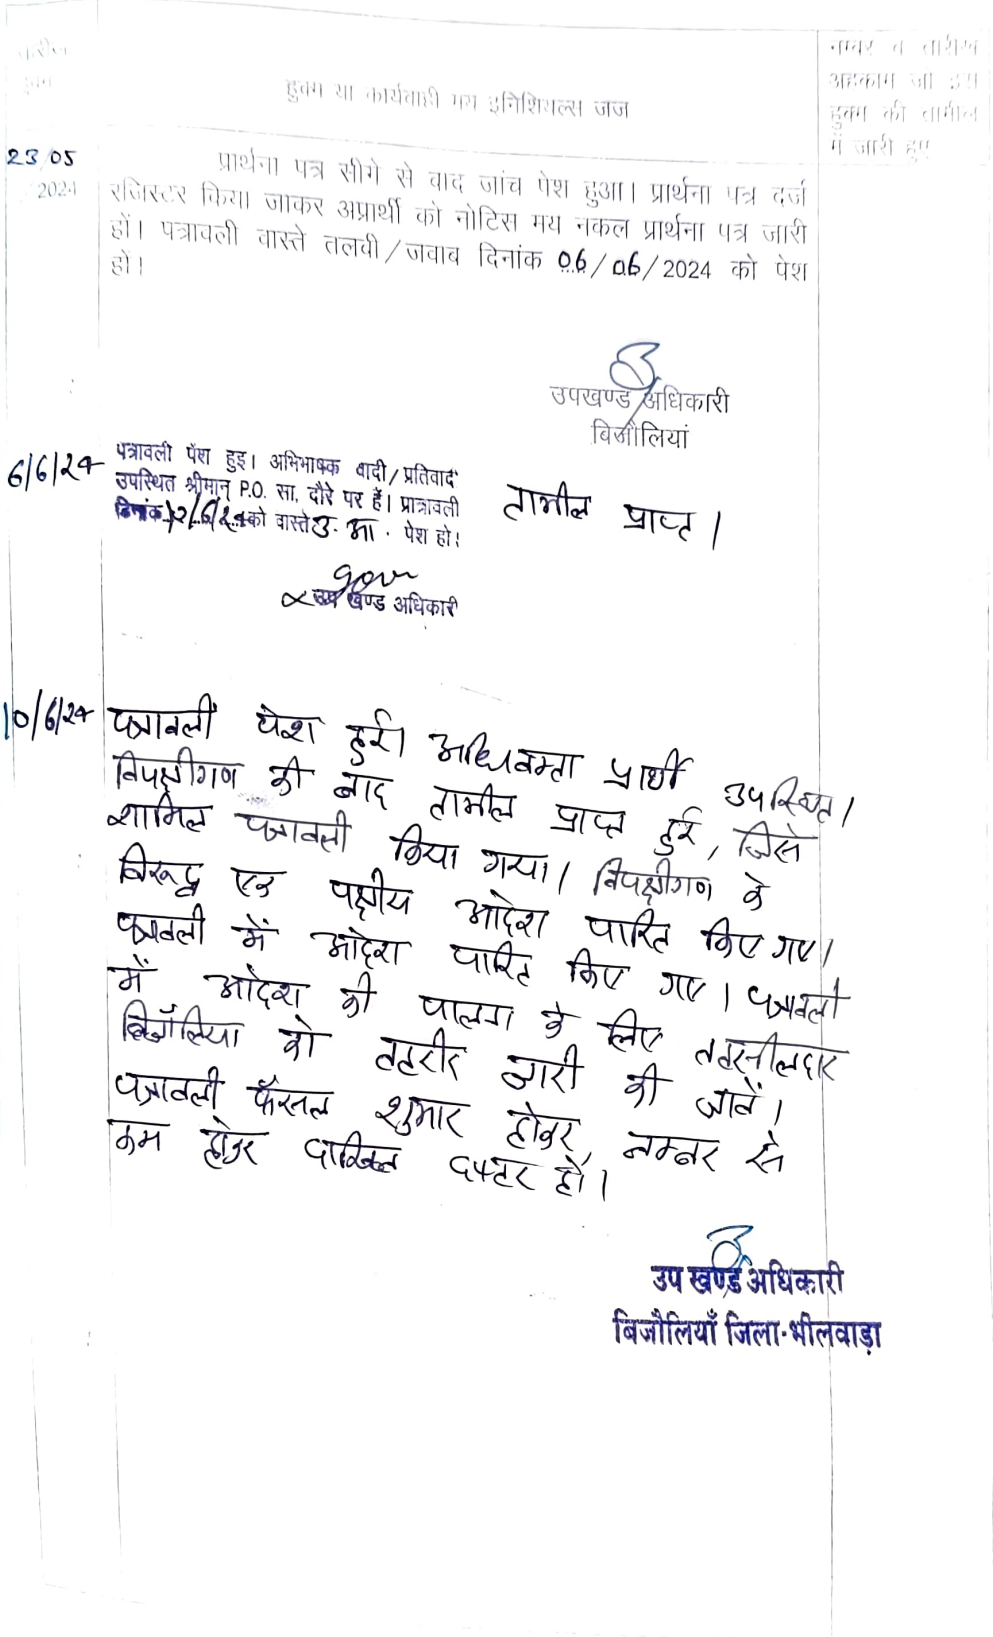 तारीख
हुक्म
हुक्म या कार्यवाही मय इनिशियल्स जज
नम्बर व तारीख
अहकाम जो इस
हुक्म की तामील
में जारी हुए
23/05
2024
प्रार्थना पत्र सीगे से वाद जांच पेश हुआ। प्रार्थना पत्र दर्ज
रजिस्टर किया जाकर अप्रार्थी को नोटिस मय नकल प्रार्थना पत्र जारी
हों। पत्रावली वास्ते तलवी/जवाब दिनांक 06/06/2024 को पेश
हो।
उपखण्ड अधिकारी
बिजौलियां
6/6/24
पत्रावली पेंश हुइ। अभिभाषक वादी/प्रतिवादी
उपस्थित श्रीमान् P.O. सा. दौरे पर हैं। प्रात्रावली
दिनांक /6/24 को वास्ते उ. आ. पेश हो।
तामील प्राप्त।
उप खण्ड अधिकारी
10/6/24
पत्रावली पेश हुई। अधिवक्ता प्रार्थी उपस्थित।
विपक्षीगण की बाद तामील प्राप्त हुई, जिसे
शामिल पत्रावली किया गया। विपक्षीगण के
विरूद्ध एक पक्षीय आदेश पारित किए गए।
पत्रावली में आदेश पारित किए गए। पत्रावली
में आदेश की पालना के लिए तहसीलदार
बिजौलिया को तहरीर जारी की जावें।
पत्रावली फैसल शुमार होकर, नम्बर से
कम होकर दाखिल दफ्तर हो।
उप खण्ड अधिकारी
बिजौलियाँ जिला-भीलवाड़ा